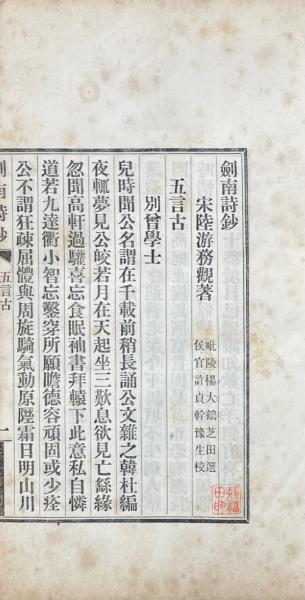 劍南詩鈔
宋陸游務觀著
毗陵楊大鶴芝田選
侯官許貞幹豫生校
五言古
別曾學士
兒時聞公名謂在千載前稍長誦公文雜之韓杜編
夜輒夢見公皎若月在天起坐三歎息欲見亡繇緣
忽聞高軒過驩喜忘食眠袖書拜轅下此意私自憐
道若九逵衢小智妄鑿穿所願瞻德容頑固或少痊
公不謂狂疎屈體與周旋騎氣動原隰霜日明山川
劍南詩鈔
五言古
一